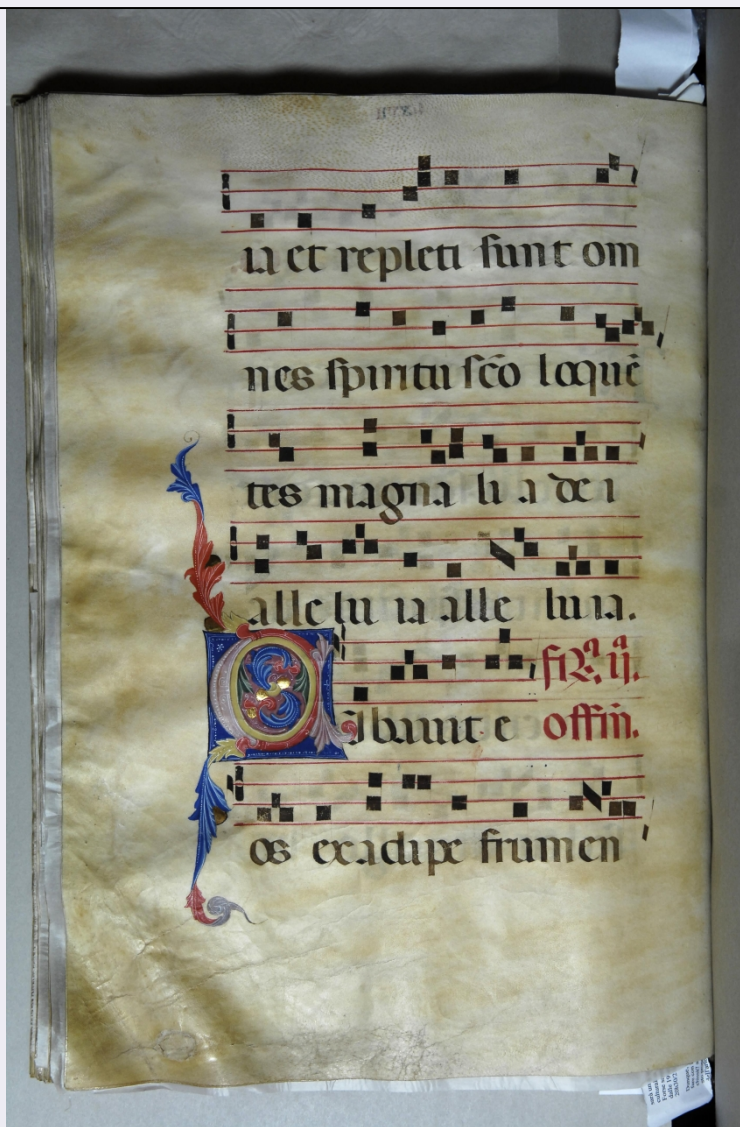 ia et repleti sunt om
nes spiritu sc̄o loquē
tes magna li a de i
alle lu ia alle luia.
fr̄. ij.
Cibavit e offm̄.
os exadipe frumen